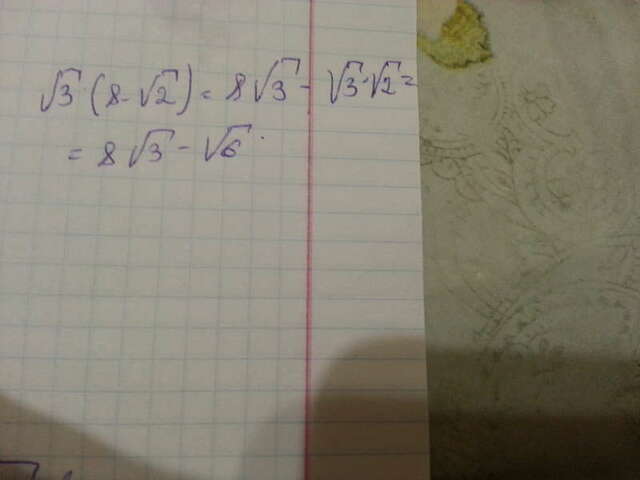 √3 · (8 - √2) = 8√3 - √3 · √2 =
= 8√3 - √6.